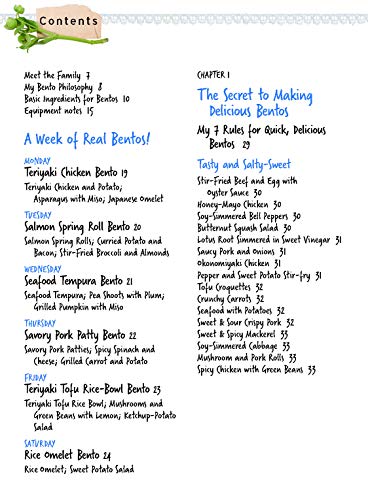 Contents
Meet the Family 7
My Bento Philosophy 8
Basic Ingredients for Bentos 10
Equipment notes 15
A Week of Real Bentos!
MONDAY
Teriyaki Chicken Bento 19
Teriyaki Chicken and Potato;
Asparagus with Miso; Japanese Omelet
TUESDAY
Salmon Spring Roll Bento 20
Salmon Spring Rolls; Curried Potato and
Bacon; Stir-Fried Broccoli and Almonds
WEDNESDAY
Seafood Tempura Bento 21
Seafood Tempura; Pea Shoots with Plum;
Grilled Pumpkin with Miso
THURSDAY
Savory Pork Patty Bento 22
Savory Pork Patties; Spicy Spinach and
Cheese; Grilled Carrot and Potato
FRIDAY
Teriyaki Tofu Rice-Bowl Bento 23
Teriyaki Tofu Rice Bowl; Mushrooms and
Green Beans with Lemon; Ketchup-Potato
Salad
SATURDAY
Rice Omelet Bento 24
Rice Omelet; Sweet Potato Salad
CHAPTER 1
The Secret to Making
Delicious Bentos
My 7 Rules for Quick, Delicious
Bentos 29
Tasty and Salty-Sweet
Stir-Fried Beef and Egg with
Oyster Sauce 30
Honey-Mayo Chicken 30
Soy-Simmered Bell Peppers 30
Butternut Squash Salad 30
Lotus Root Simmered in Sweet Vinegar 31
Saucy Pork and Onions 31
Okonomiyaki Chicken 31
Pepper and Sweet Potato Stir-fry 31
Tofu Croquettes 32
Crunchy Carrots 32
Seafood with Potatoes 32
Sweet & Sour Crispy Pork 32
Sweet & Spicy Mackerel 33
Soy-Simmered Cabbage 33
Mushroom and Pork Rolls 33
Spicy Chicken with Green Beans 33